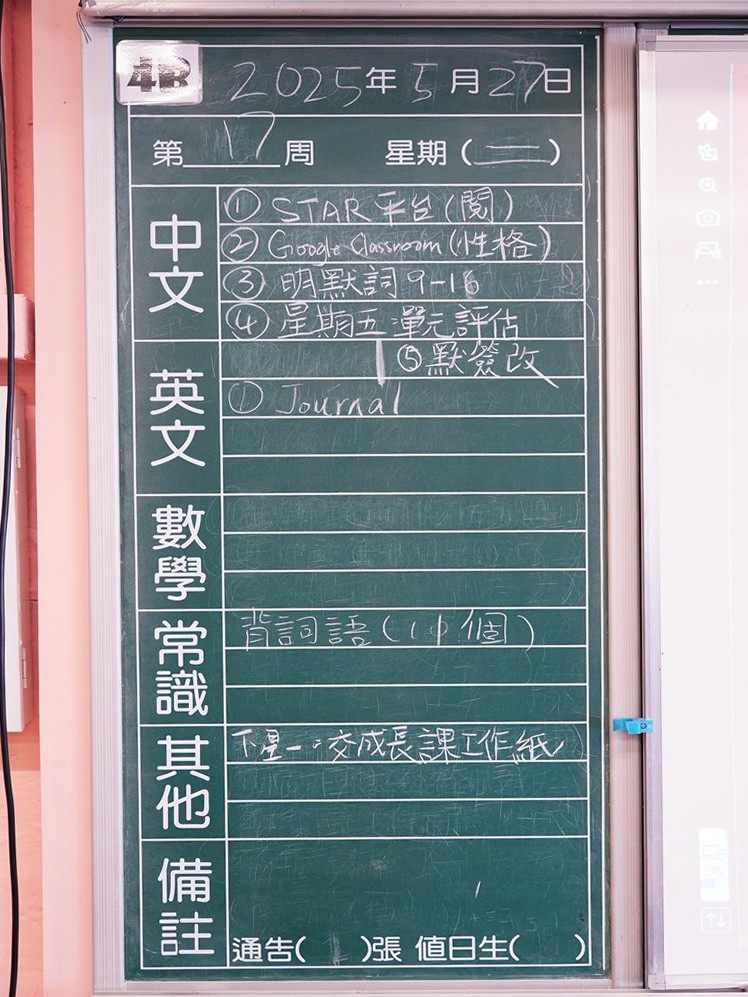 4B
2025年5月27日
第17周 星期(二)
中文
① STAR平台(閱)
② Google Classroom(性格)
③ 明默詞9-16
④ 星期五單元評估
⑤默簽改
英文
① Journal
數學
常識
背詞語(10個)
其他
下星一:交成長課工作紙
備註
通告( )張 值日生( )